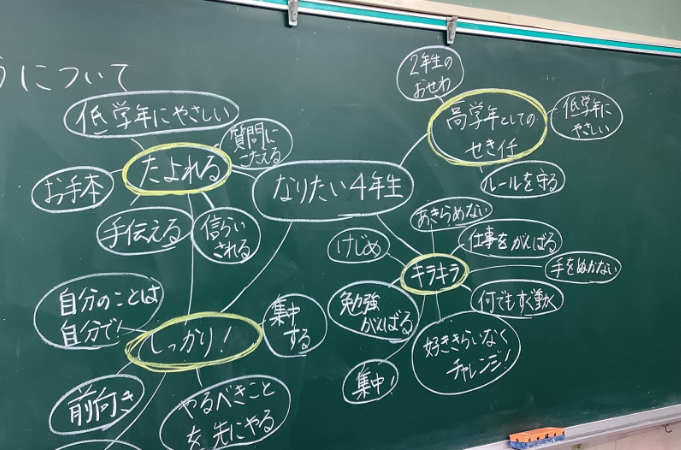 うについて
低学年にやさしい
質問に
こたえる
たよれる
お手本
手伝える
信らい
される
なりたい4年生
2年生の
おせわ
高学年としての
せき任
低学年に
やさしい
ルールを守る
あきらめない
けじめ
仕事をがんばる
キラキラ
手をぬかない
勉強
がんばる
何でもすぐ動く
好ききらいなく
チャレンジ!
集中!
自分のことは
自分で!
しっかり!
集中
する
前向き
やるべきこと
を先にやる